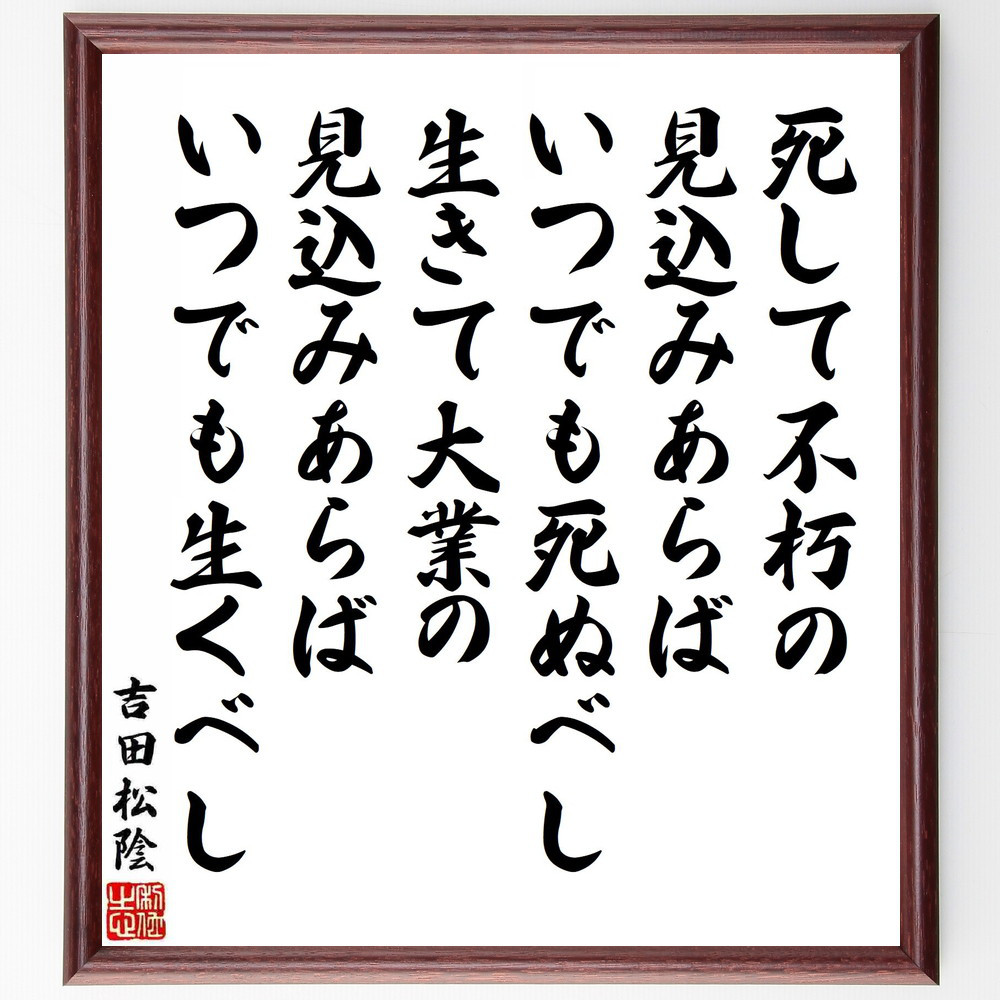 死して不朽の
見込みあらば
いつでも死ぬべし
生きて大業の
見込みあらば
いつでも生くべし
吉田松陰